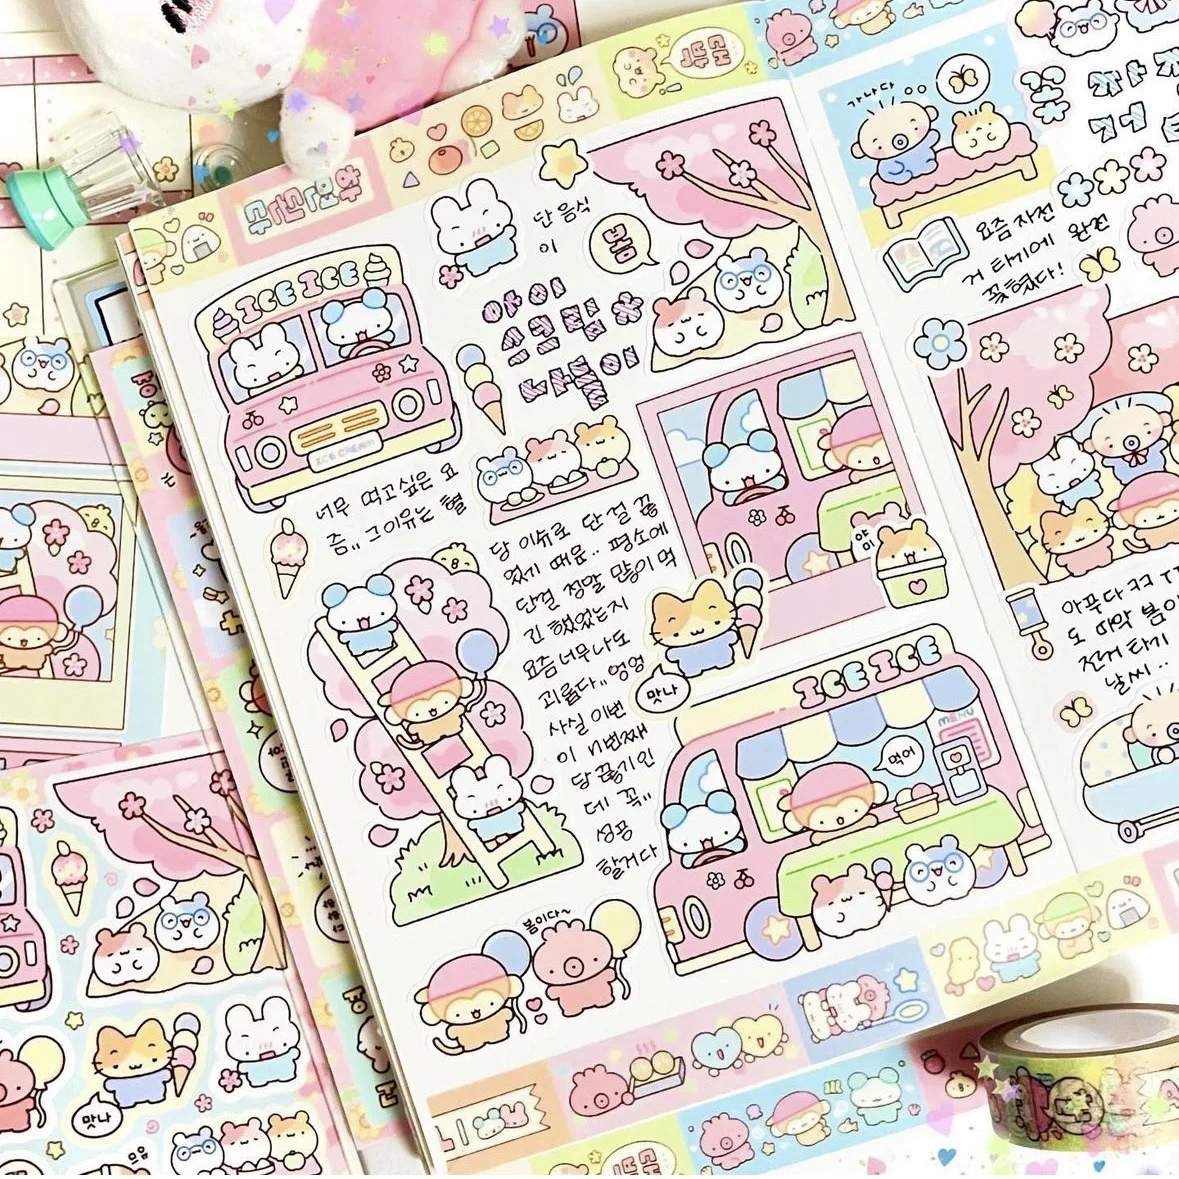 단 음식
이
봄
아이
스크림
냠이
ICE ICE
ICE CREAM
너무 먹고싶은 요
즘,, 그 이유는 혈
당 이슈로 단걸 끊
었기 때문.. 평소에
단걸 정말 많이 먹
긴 했었는지
요즘 너무나도
괴롭다.. 엉엉
사실 이번
이 n번째
당 끊기인
데 꼭,,
성공
할거다
야
미
맛나
ICE ICE
MENU
먹어
봄이다~
가나다
요즘 자전
거 타기에 완전
꽂혔다!
아푸다 ㅋㅋ ㅜㅜ
도 따악 봄이
전거 타기
날씨..
맛나